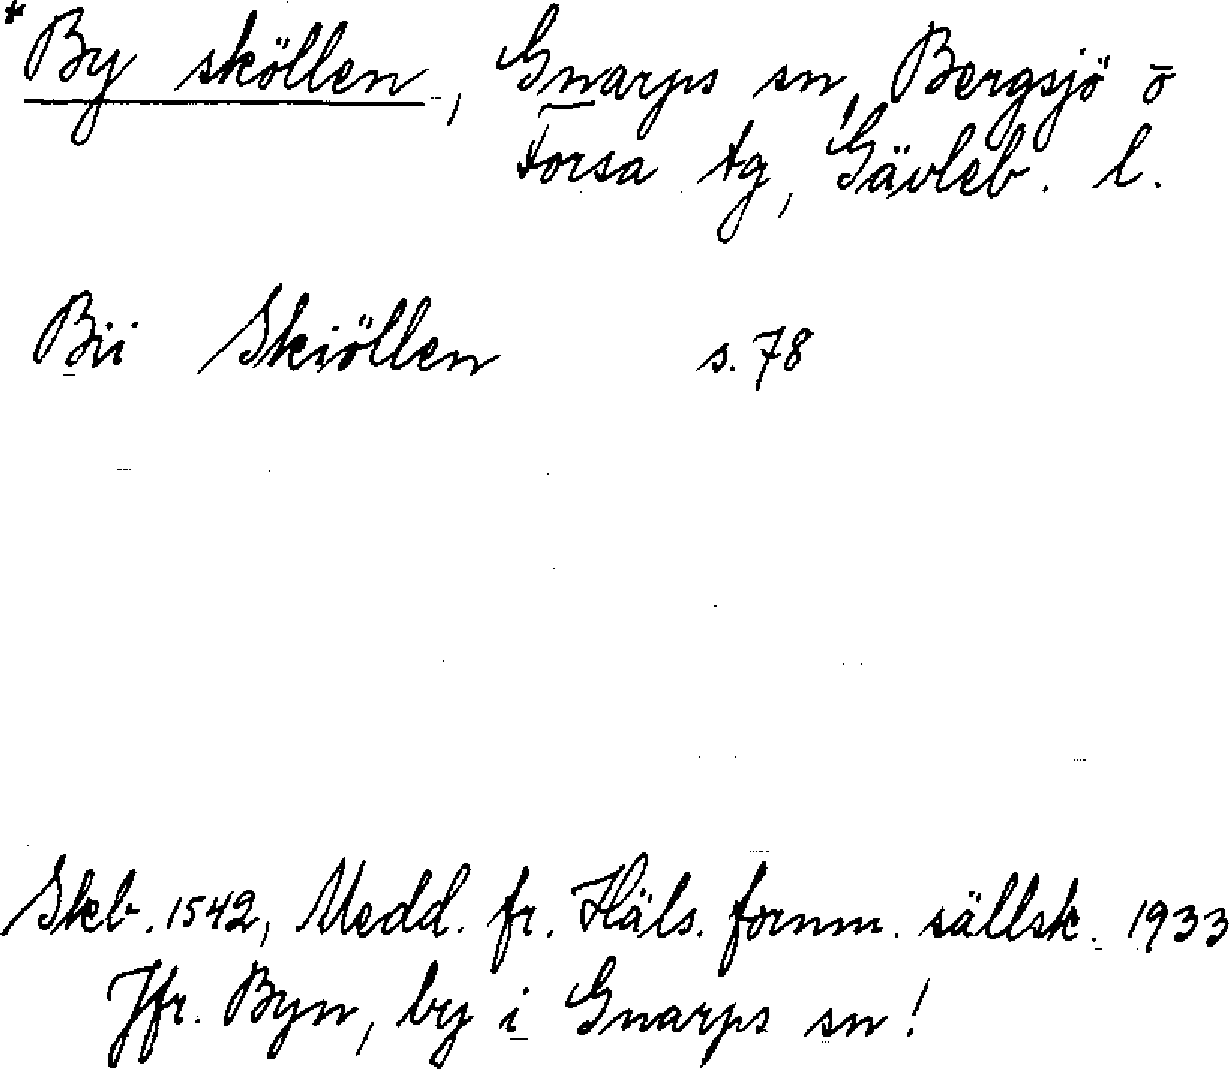 *By sköllen, Gnarps sn, Bergsjö o
Forsa tg, Gävleb. l.
Bii Skiöllen s. 78
Skeb. 1542, Medd. fr. Häls. fornm. sällsk. 1933
Jfr. Byn, by i Gnarps sn!